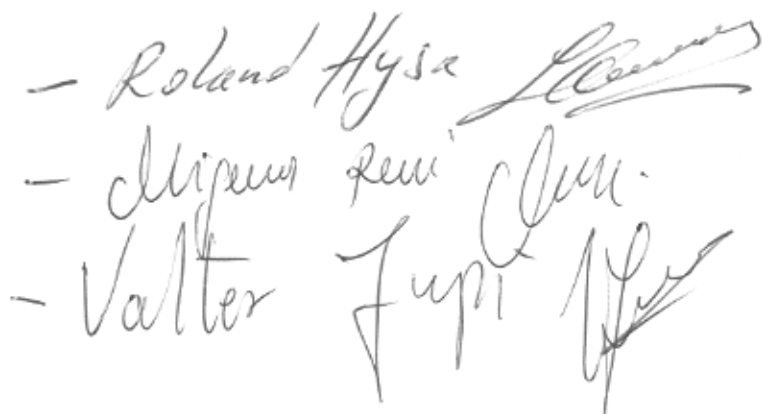 - Roland Hysa
- Migena Reni
- Valter Jupi